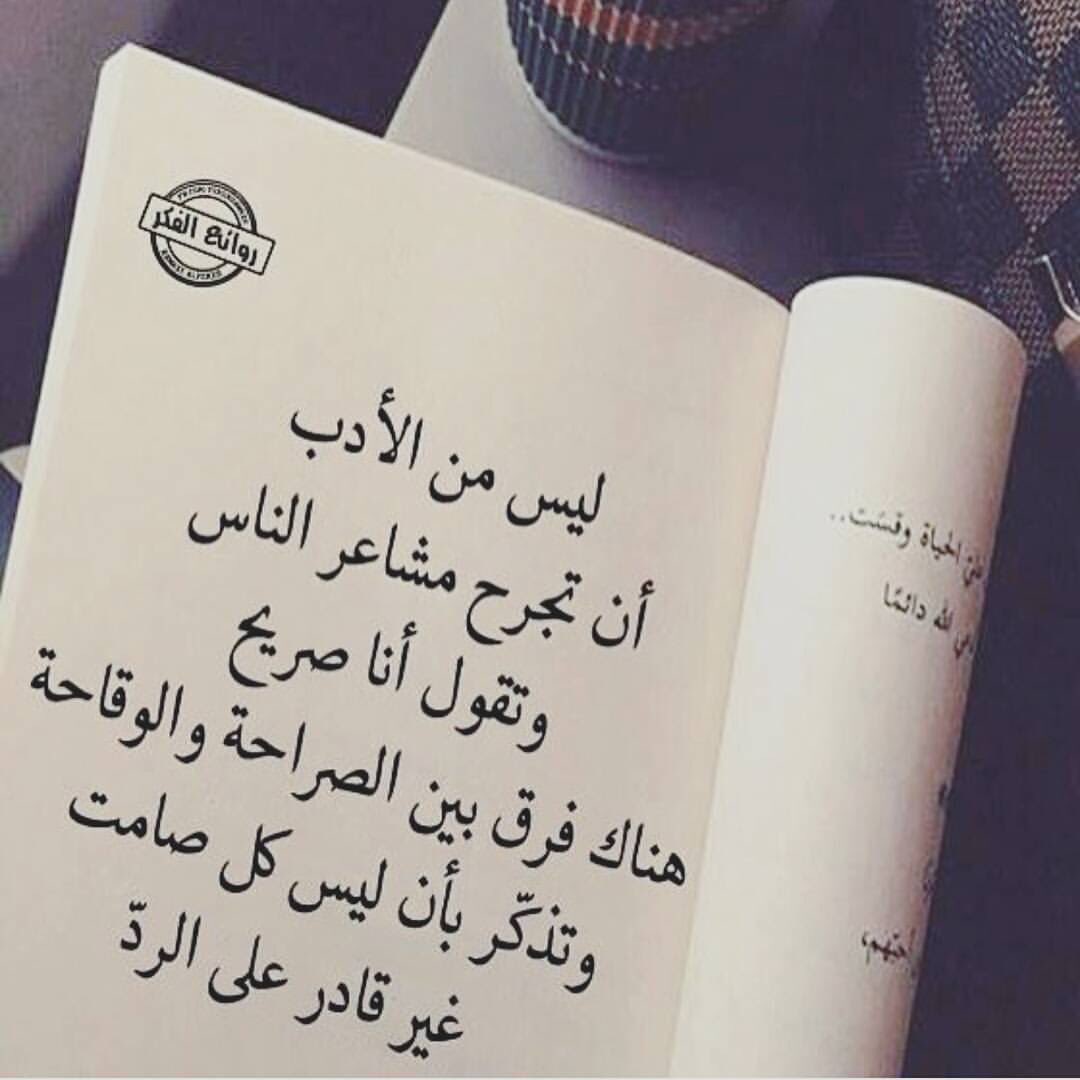 روائع الفكر
ليس من الأدب
أن تجرح مشاعر الناس
وتقول أنا صريح
هناك فرق بين الصراحة والوقاحة
وتذكّر بأن ليس كل صامت
غير قادر على الردّ
الحياة وقست..
الله دائمًا
أحبّهم،